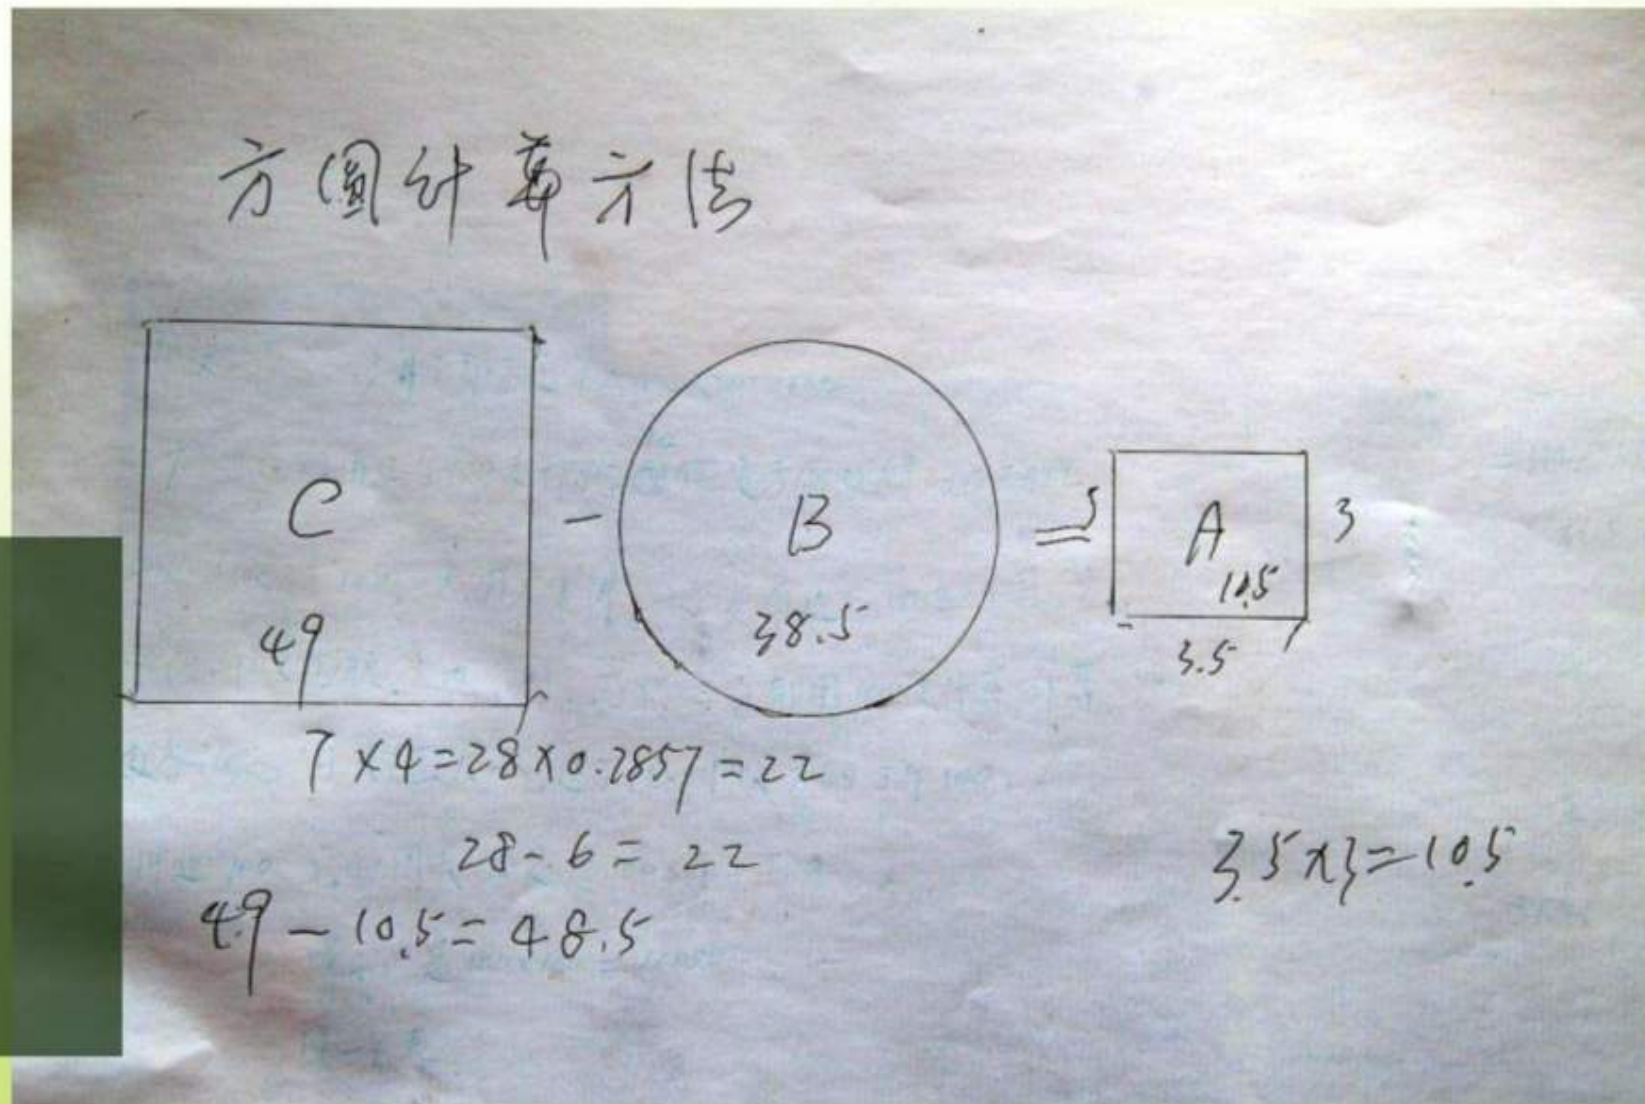 方圆计算方法
C
49
-
B
38.5
=
A
10.5
3
3.5
7×4=28×0.2857=22
28-6=22
49-10.5=48.5
3.5×3=10.5